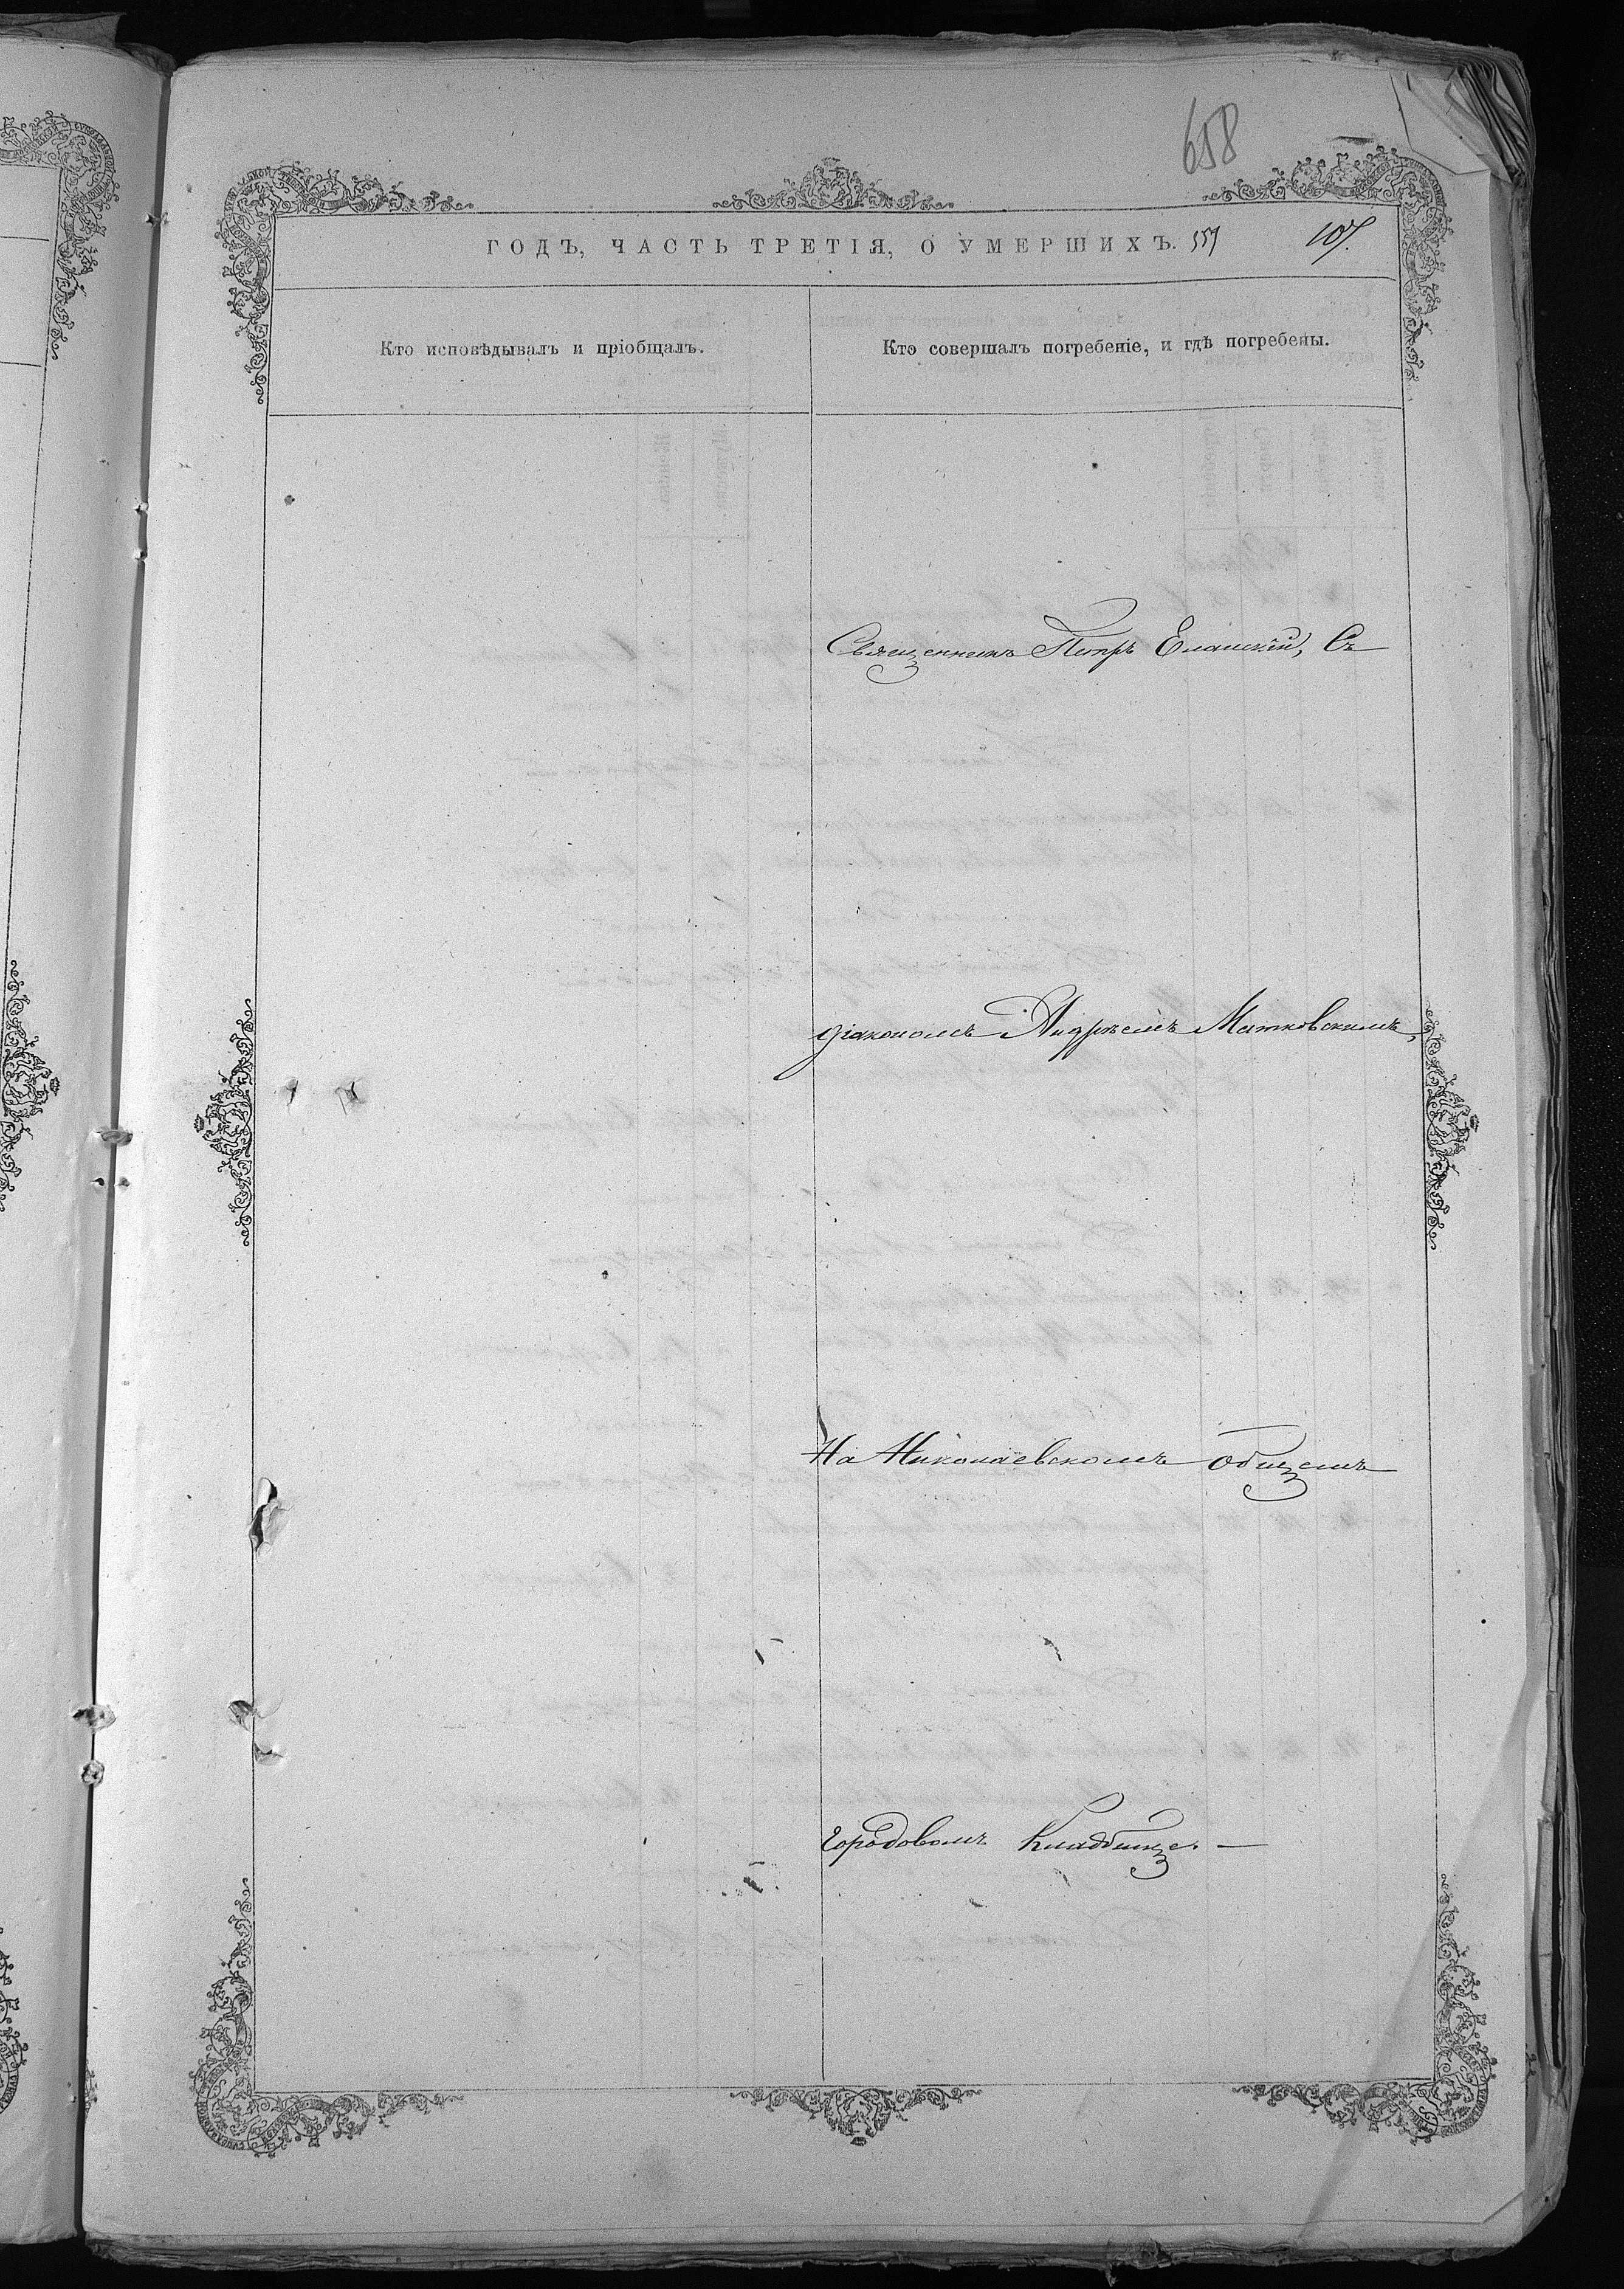 658
ГОДЪ, ЧАСТЬ ТРЕТІЯ, О УМЕРШИХЪ. 107.
Кто исповѣдывалъ и пріобщалъ.
Кто совершалъ погребеніе, и гдѣ погребены.
Священникъ Петръ Еланскій, Съ
діакономъ Андреемъ Матковскимъ,
На Николаевскомъ общемъ
городовомъ кладбище. —